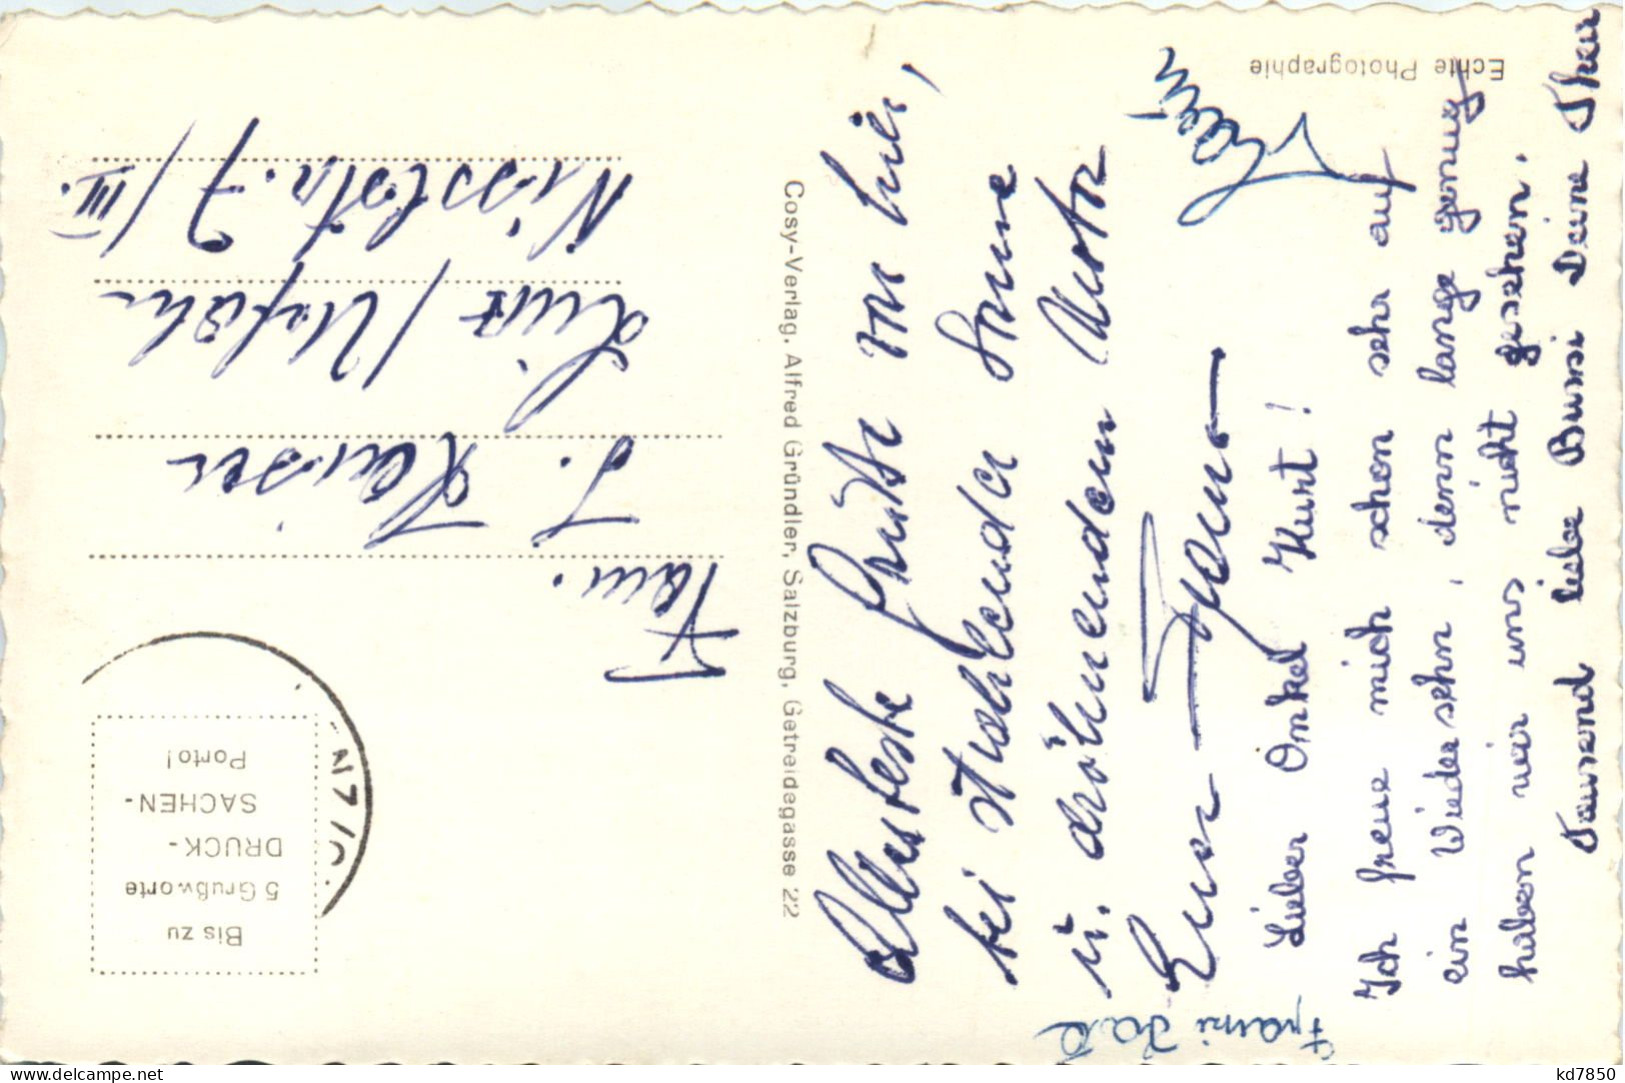 Echte Photographie
Allerbeste Grüße von hier,
bei strahlender Sonne
u. dröhnendem Motor
Euer
Lieber Onkel Kurt!
Ich freue mich schon sehr auf
ein Wiedersehn, denn lange genug
haben wir uns nicht gesehen.
Tausend liebe Bussi Deine Thea
Cosy-Verlag, Alfred Gründler, Salzburg, Getreidegasse 22
Bis zu
5 Grußworte
DRUCK-
SACHEN-
Porto!
Fam.
Linz / Urfahr
7/III.
kd7850
www.delcampe.net